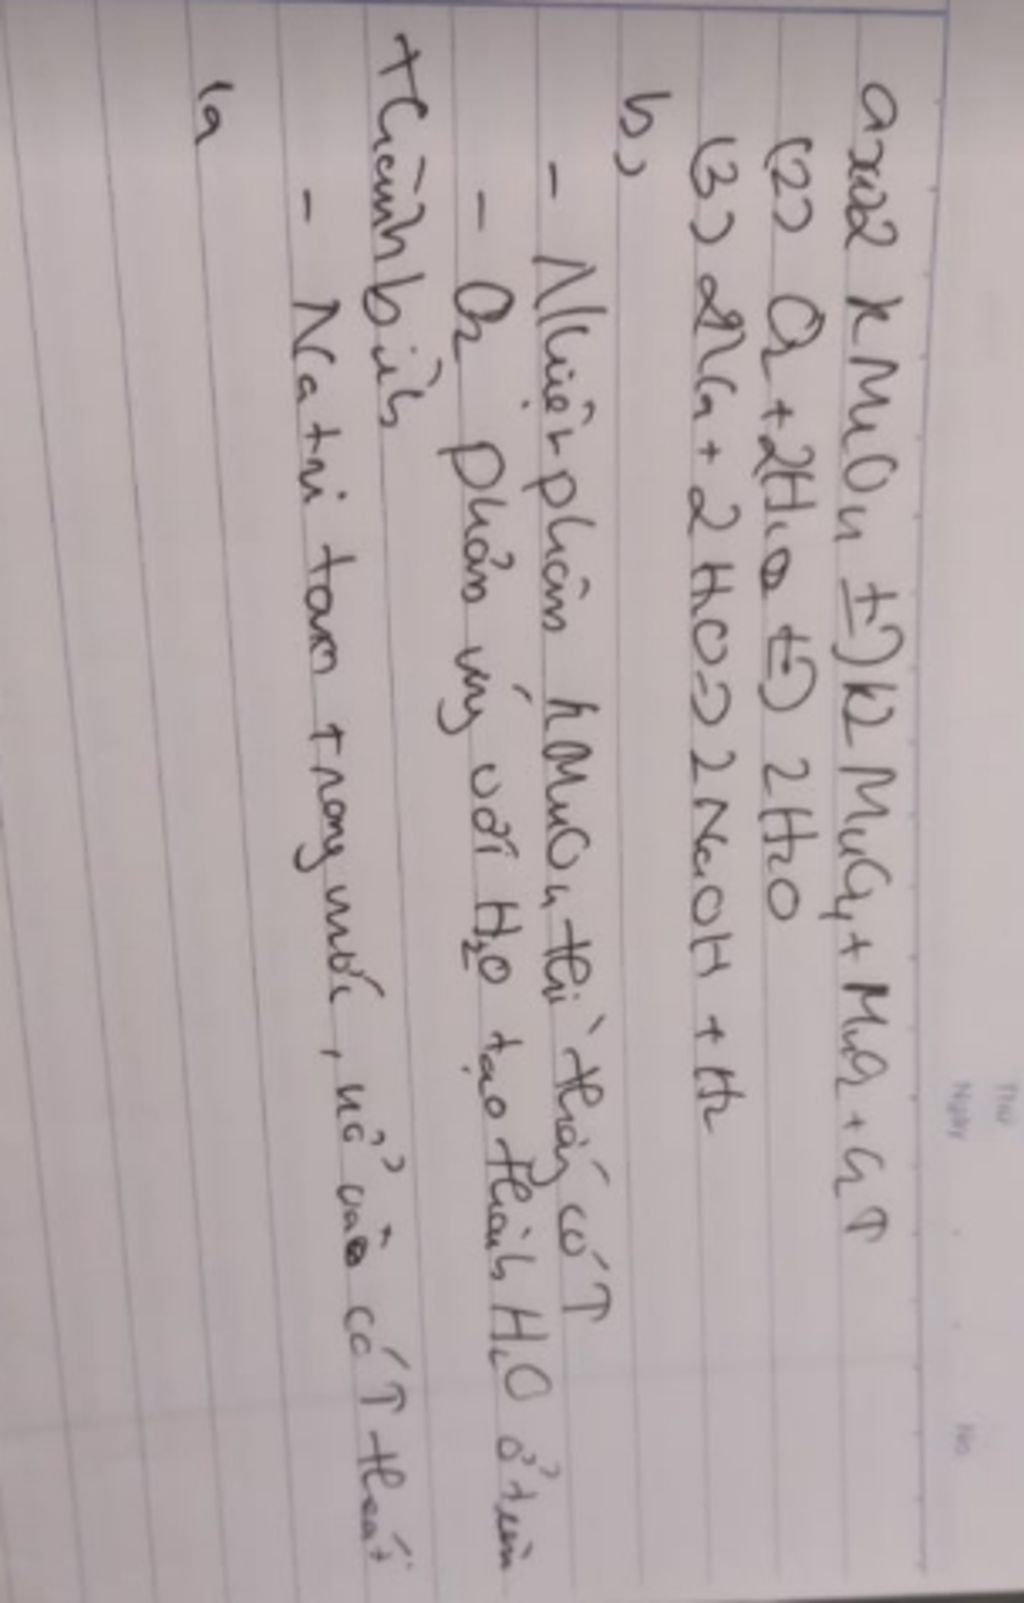 Thứ
Ngày
No
a) 2 KMnO4 t=) K2MnO4 + MnO2 + O2 ↑
(2) O2 + 2H2 t=) 2H2O
(3) 2Na + 2H2O => 2NaOH + H2
b)
- Nhiệt phân KMnO4 thì thấy có ↑
- O2 phản ứng với H2O tạo thành H2O ở trên
thành bình
- Natri tan trong nước, nổ và có ↑ thoát
ra